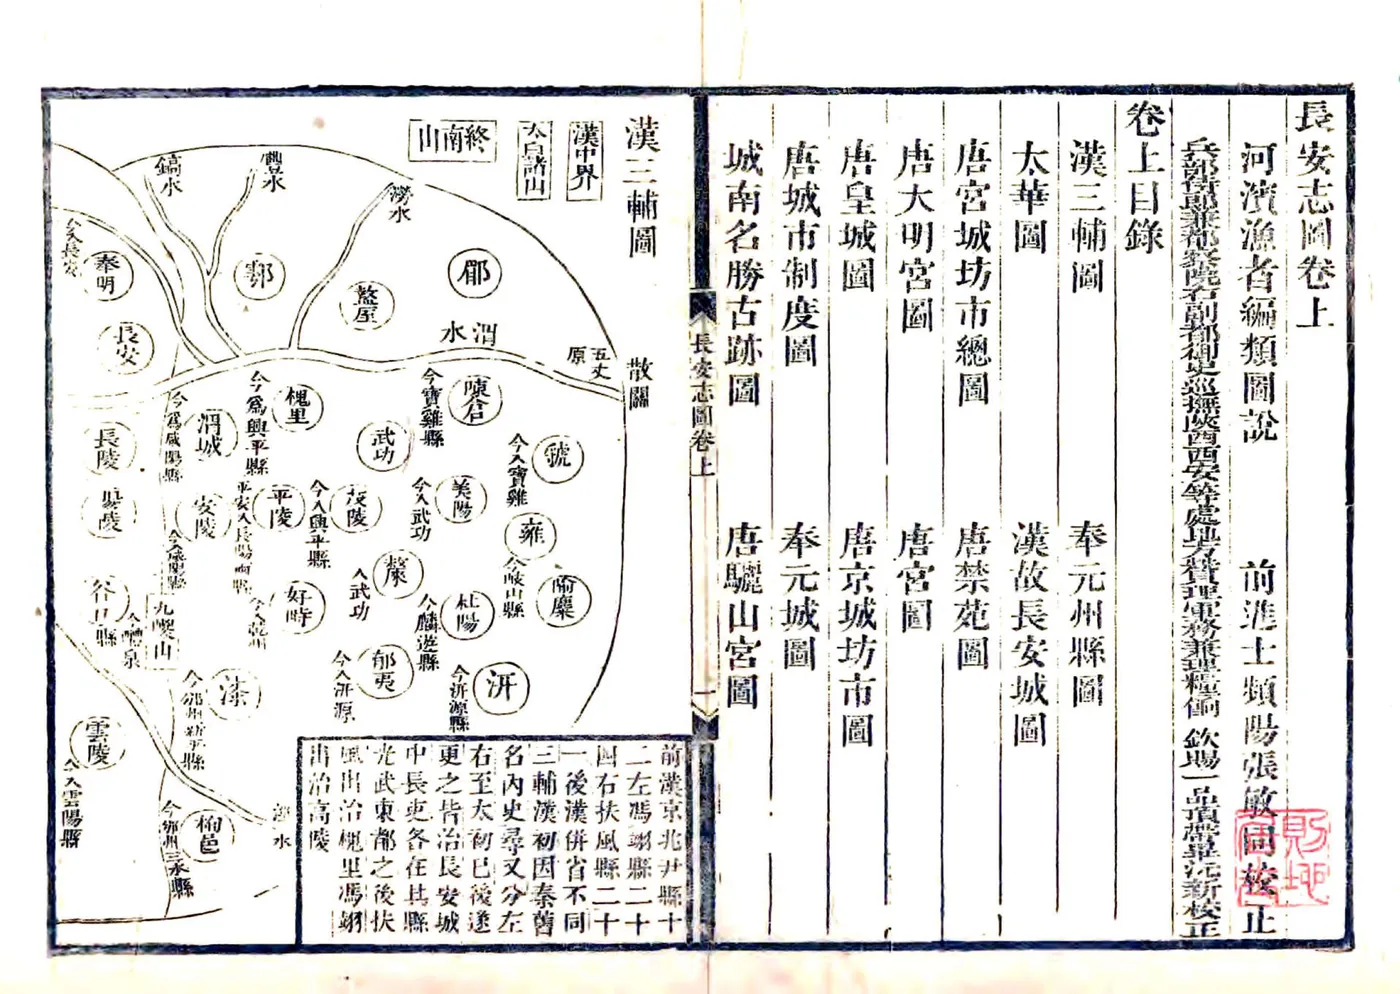 長安志圖卷上
河濱漁者編類圖說
前進士頻陽張敏同校正
兵部侍郎兼都察院右副都御史巡撫陝西西安等處地方贊理軍務兼理糧餉 欽賜一品頂帶畢沅新校正
卷上目錄
漢三輔圖
奉元州縣圖
太華圖
漢故長安城圖
唐宮城坊市總圖
唐禁苑圖
唐大明宮圖
唐宮圖
唐皇城圖
唐京城坊市圖
唐城市制度圖
奉元城圖
城南名勝古跡圖
唐驪山宮圖
長安志圖卷上
一
漢三輔圖
漢中界
太白諸山
終南山
散關
五丈原
渭水
澇水
豐水
鎬水
郿
盩厔
鄠
奉明
今入長安
長安
陳倉
今寶雞縣
虢
今入寶雞
武功
槐里
今為興平縣
渭城
今為咸陽縣
長陵
美陽
今入武功
雍
今岐山縣
隃麋
茂陵
今入興平縣
平陵
安陵
陽陵
斄
入武功
杜陽
今麟遊縣
好畤
今入乾州
谷口縣
今醴泉
九嵕山
郁夷
今入汧源
汧
今汧源縣
漆
今邠州新平縣
雲陵
今入雲陽縣
栒邑
今邠州三水縣
前漢京兆尹縣十
二左馮翊縣二十
四右扶風縣二十
一後漢併省不同
三輔漢初因秦舊
名內史尋又分左
右至太初已後遂
更之皆治長安城
中長吏各在其縣
光武東都之後扶
風出治槐里馮翊
出治高陵